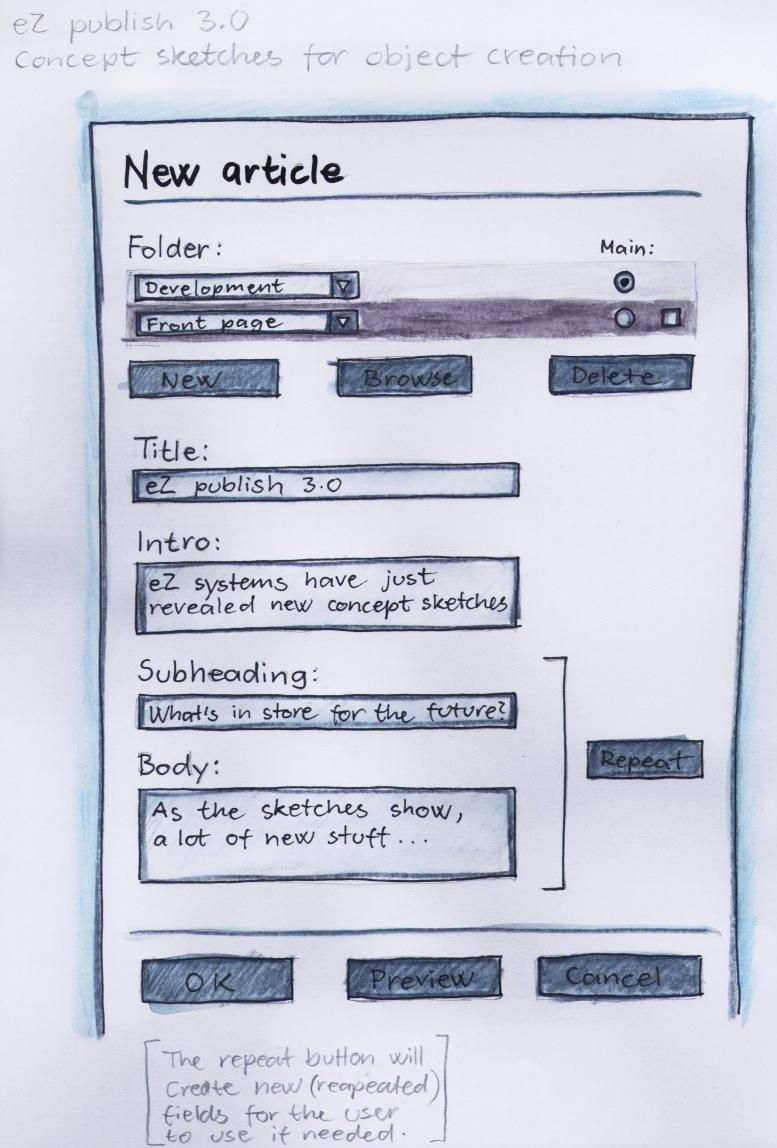 eZ publish 3.0
Concept sketches for object creation
New article
Folder:
Main:
Development
Front page
New
Browse
Delete
Title:
eZ publish 3.0
Intro:
eZ systems have just
revealed new concept sketches
Subheading:
What's in store for the future?
Body:
Repeat
As the sketches show,
a lot of new stuff...
OK
Preview
Cancel
The repeat button will
create new (reapeated)
fields for the user
to use if needed.